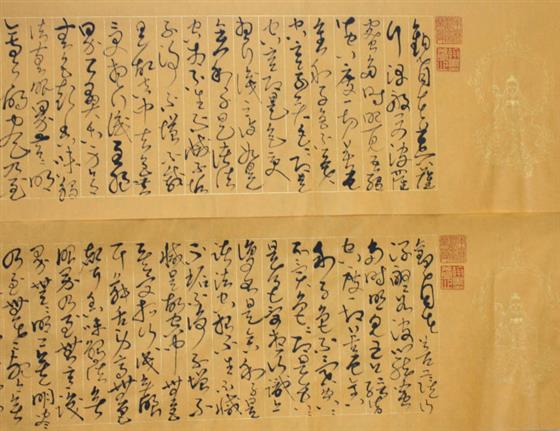 觀自在菩薩
行深般若波羅
蜜多時照見五蘊
皆空度一切苦厄
舍利子色不異
空空不異色色即是
空空即是色受
想行識亦復如是
舍利子是諸法
空相不生不滅不垢
不淨不增不減
是故空中無色無
受想行識無眼
耳鼻舌身意無
色聲香味觸
法無眼界
乃至
觀自在菩薩行
深般若波羅蜜
多時照見五蘊皆
空度一切苦厄舍
利子色不異空空
不異色色即是空空
即是色受想行識亦
復如是舍利子是
諸法空相不生不滅
不垢不淨不增不
減是故空中無色
無受想行識無眼
耳鼻舌身意無色
聲香味觸法無
眼界乃至無意識
界無無明亦無無明盡
乃至無老死亦無